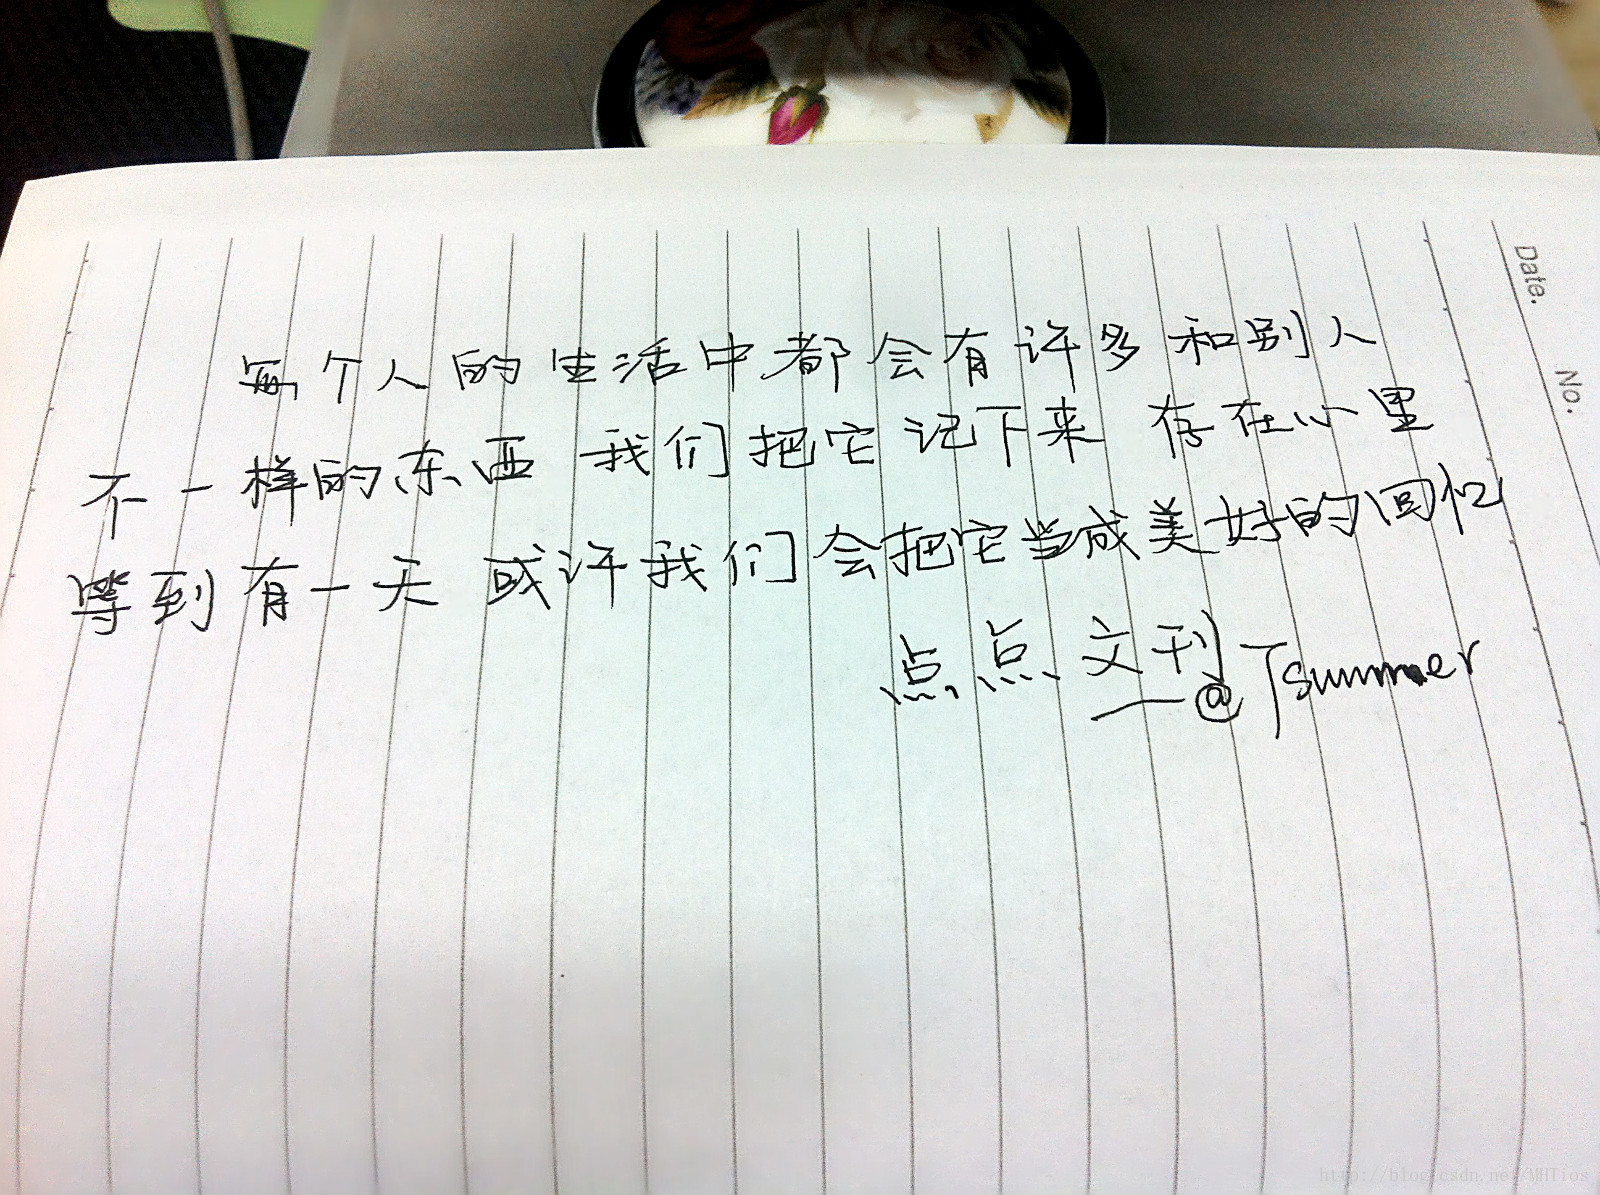 每个人的生活中都会有许多和别人
不一样的东西 我们把它记下来 存在心里
等到有一天 或许我们会把它当成美好的回忆
点点文刊
——@Tsummer
Date.
No.
http://blog.csdn.net/MHTios